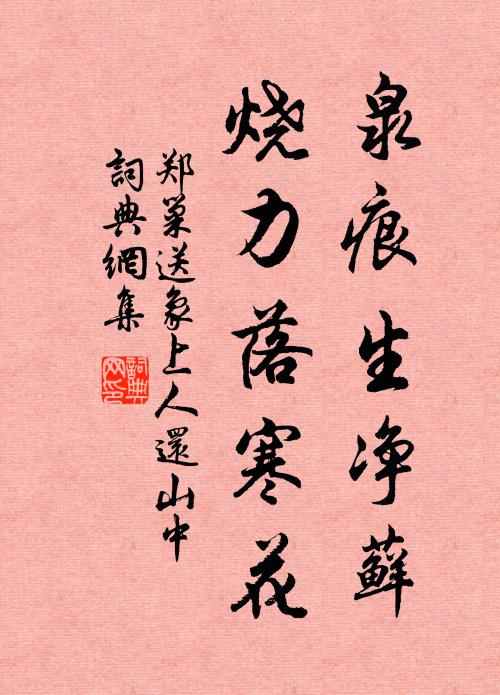 泉痕生净蘚
烧力落寒花
郑巢送象上人還山中
詞典網集
詞典网印